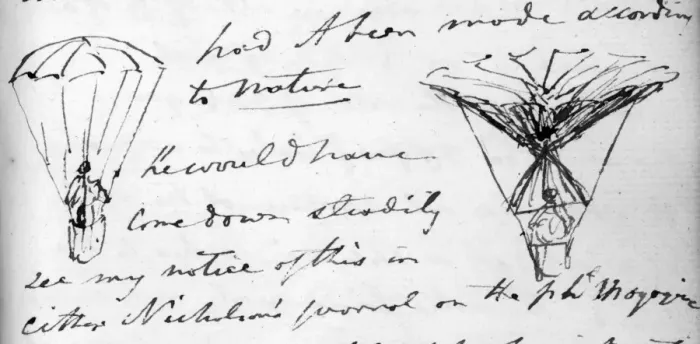 had it been made according
to nature
he would have
come down steadily
see my notice of this in
either Nicholson's journal or the phl Magazine